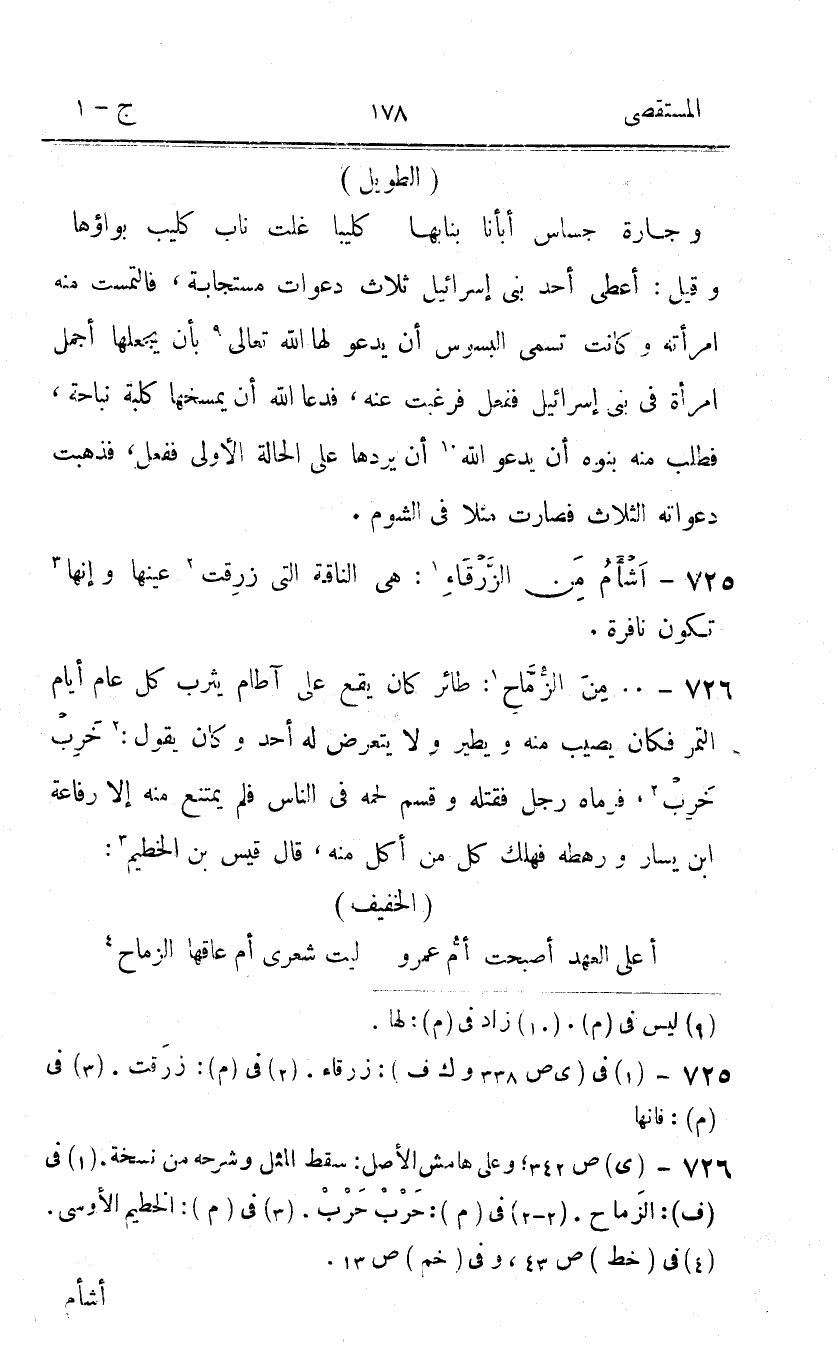 المستقصى ١٧٨ ج - ١
( الطويل )
و جارة جساس أبأنا بنابها كليبا غلت ناب كليب بواؤها
و قيل : أعطى أحد بنى إسرائيل ثلاث دعوات مستجابة ، فالتمست منه
امرأته و كانت تسمى البسوس أن يدعو لها الله تعالى ٩ بأن يجعلها أجمل
امرأة فى بنى إسرائيل ففعل فرغبت عنه ، فدعا الله أن يمسخها كلبة نباحة ،
فطلب منه بنوه أن يدعو الله ١٠ أن يردها على الحالة الأولى ففعل ، فذهبت
دعواته الثلاث فصارت مثلا فى الشوم .
٧٢٥ - اَشْأَمُ مِن الزَّرْقَاءِ ١ : هى الناقة التى زرِقت ٢ عينها و إنها ٣
تكون نافرة .
٧٢٦ - ٠٠ مِنَ الزُّمَّاحِ ١ : طائر كان يقع على آطام يثرب كل عام أيام
التمر فكان يصيب منه و يطير و لا يتعرض له أحد و كان يقول : ٢ خَرِبْ
خَرِبْ ٢ ، فرماه رجل فقتله و قسم لحمه فى الناس فلم يمتنع منه إلا رفاعة
ابن يسار و رهطه فهلك كل من أكل منه ، قال قيس بن الخطيم ٣ :
( الخفيف )
أ على العهد أصبحت أمُّ عمرو ليت شعرى أم عاقها الزماح ٤
(٩) ليس فى (م) . (١٠) زاد فى (م) : لها .
٧٢٥ - (١) فى ( ى ص ٣٣٨ و ك ف ) : زرقاء . (٢) فى (م) : زرَقت . (٣) فى
(م) : فانها
٧٢٦ - (ى) ص ٣٤٢؛ و على هامش الأصل: سقط المثل و شرحه من نسخة . (١) فى
(ف): الزَماح . (٢-٢) فى ( م ) : حَرْبْ حَرْبْ . (٣) فى ( م ) : الخطيم الأوسى .
(٤) فى ( خط ) ص ٤٣ ، و فى ( خم ) ص ١٣ .
أشأم